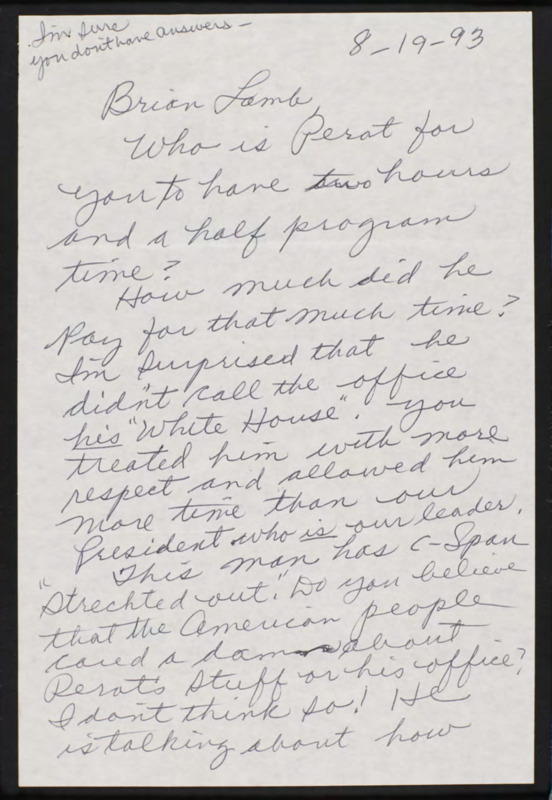 I'm sure
you don't have answers —
8-19-93
Brian Lamb,
Who is Perot for
you to have two hours
and a half program
time?
How much did he
pay for that much time?
I'm surprised that he
didn't call the office
his "White House". You
treated him with more
respect and allowed him
more time than our
President who is our leader.
This man has C-Span
"Strechted out." Do you believe
that the American people
cared a damn about
Perot's stuff or his office?
I don't think so! He
is talking about how